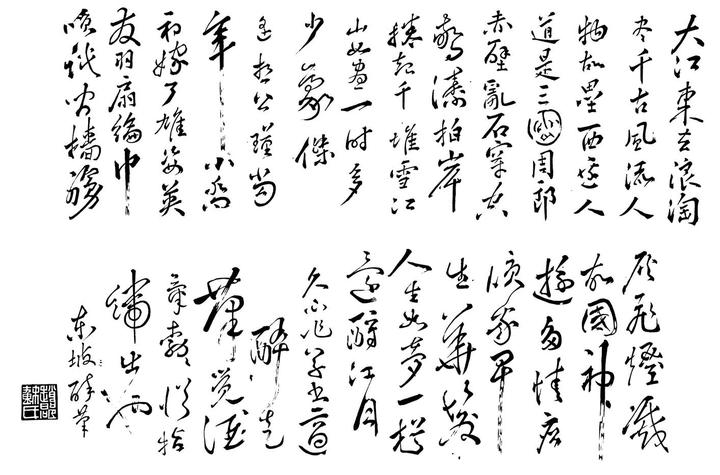 大江東去浪淘
尽千古風流人
物故壘西邊人
道是三國周郎
赤壁亂石穿空
驚濤拍岸
捲起千堆雪江
山如畫一時多
少豪傑
遥想公瑾當
年小喬
初嫁了雄姿英
发羽扇綸巾
間檣艣
灰飛煙滅
故國神
遊多情應
我早
生華髮
人生如夢一樽
還酹江月
久不作草書適
醉走
筆覺酒
氣勃勃從指
端出也
東坡醉筆